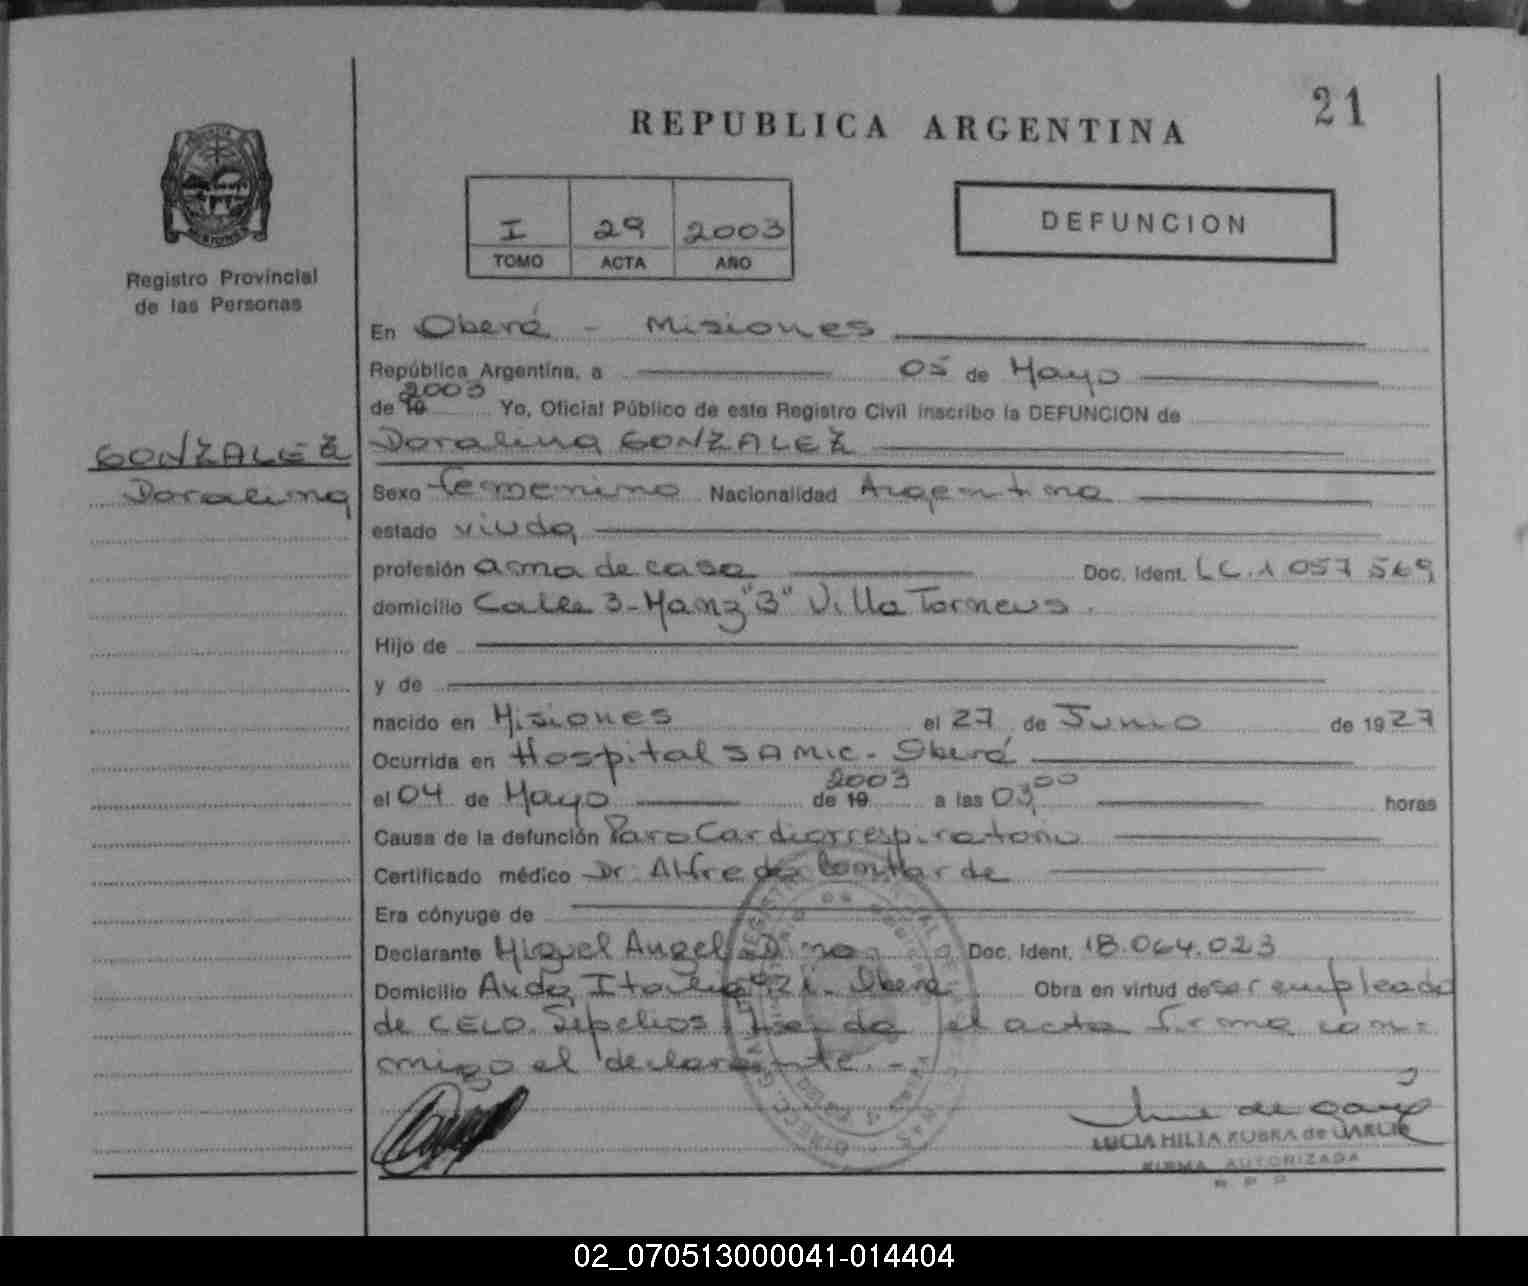 21
REPUBLICA ARGENTINA
I 29 2003
TOMO ACTA AÑO
DEFUNCION
Registro Provincial
de las Personas
GONZALEZ
Doralina
En Oberá - Misiones
República Argentina, a 05 de Mayo
2003
de 19 Yo, Oficial Público de este Registro Civil inscribo la DEFUNCION de
Doralina GONZALEZ
Sexo femenino Nacionalidad Argentina
estado viuda
profesión ama de casa Doc. Ident. L.C. 1 057 569
domicilio Calle 3 - Manz "3" Villa Torneus.
Hijo de
y de
nacido en Misiones el 27 de Junio de 1927
Ocurrida en Hospital SAMIC - Oberá
2003
el 04 de Mayo de 19 a las 03,00 horas
Causa de la defunción Paro Cardiorrespiratorio
Certificado médico Dr. Alfredo
Era cónyuge de
Declarante Miguel Angel Doc. Ident. 18.064.023
Domicilio Avda Italia 921. Oberá Obra en virtud de ser empleado
de CELO. Sepelios Leida el acta firma con-
migo el declarante. -
LUCIA HILIA
FIRMA AUTORIZADA
R P P
02_070513000041-014404